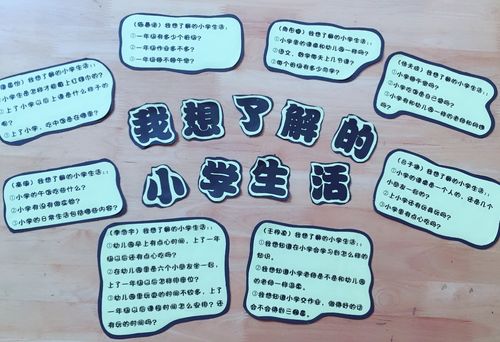 我想了解的
小学生活
我想了解的小学生活：
①一年级有多少个班级？
②一年级作业多不多？
③一年级睡不睡午觉？
我想了解的小学生活：
①小学里的课桌和幼儿园一样吗？
②语文、数学每天上几节课？
③每个班级有多少同学？
我想了解的小学生活：
①小学生是怎样才能戴上红领巾的？
②上了小学以后上课是什么样子的
呢？
③上了小学，吃中饭是在哪里？
我想了解的小学生活：
①小学睡午觉吗？
②小学吃饭是自己端吗？
③小学有和幼儿园一样的老师和同学
吗？
我想了解的小学生活：
①小学的午饭吃些什么？
②小学有没有做实验？
③小学的日常生活包括哪些内容？
我想了解的小学生活：
①小学的课桌是一个人的，还是几个
小朋友一起的？
②上小学还有玩具玩吗？
③小学里有点心吃吗？
我想了解的小学生活：
①幼儿园早上有点心时间，上了一年
级以后还有点心吃吗？
②在幼儿园里是六个小朋友坐一起，
上了一年级以后怎样排座位？
③幼儿园里玩耍的时间不较多，上了
一年级以后课程时间怎么安排？还
有玩的时间吗？
我想了解的小学生活：
①我想知道在小学会学习到怎么样的
知识。
②我想知道小学老师是不是和幼儿园
的老师一样温柔。
③我想知道小学交作业，做得好的话
会不会得到三颗星。